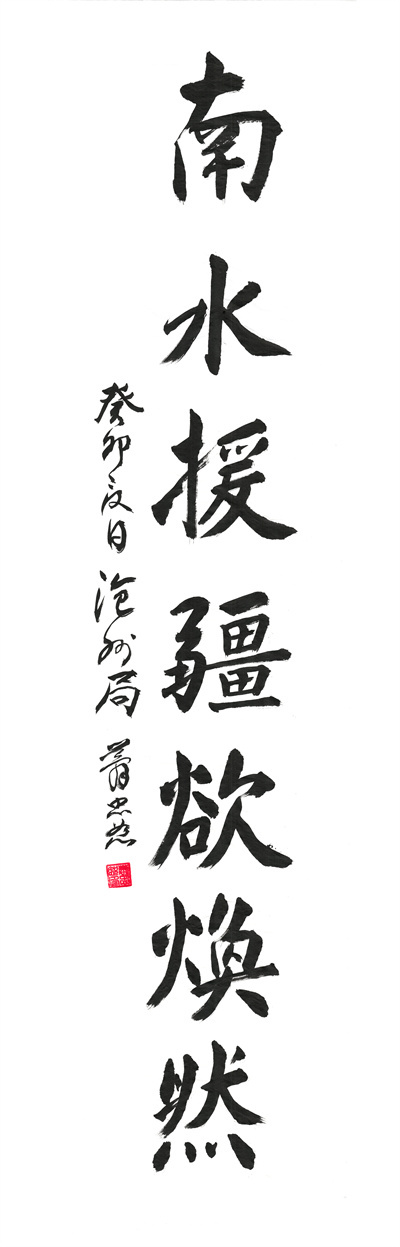 南水援疆欲焕然
癸卯夏日 沧州局